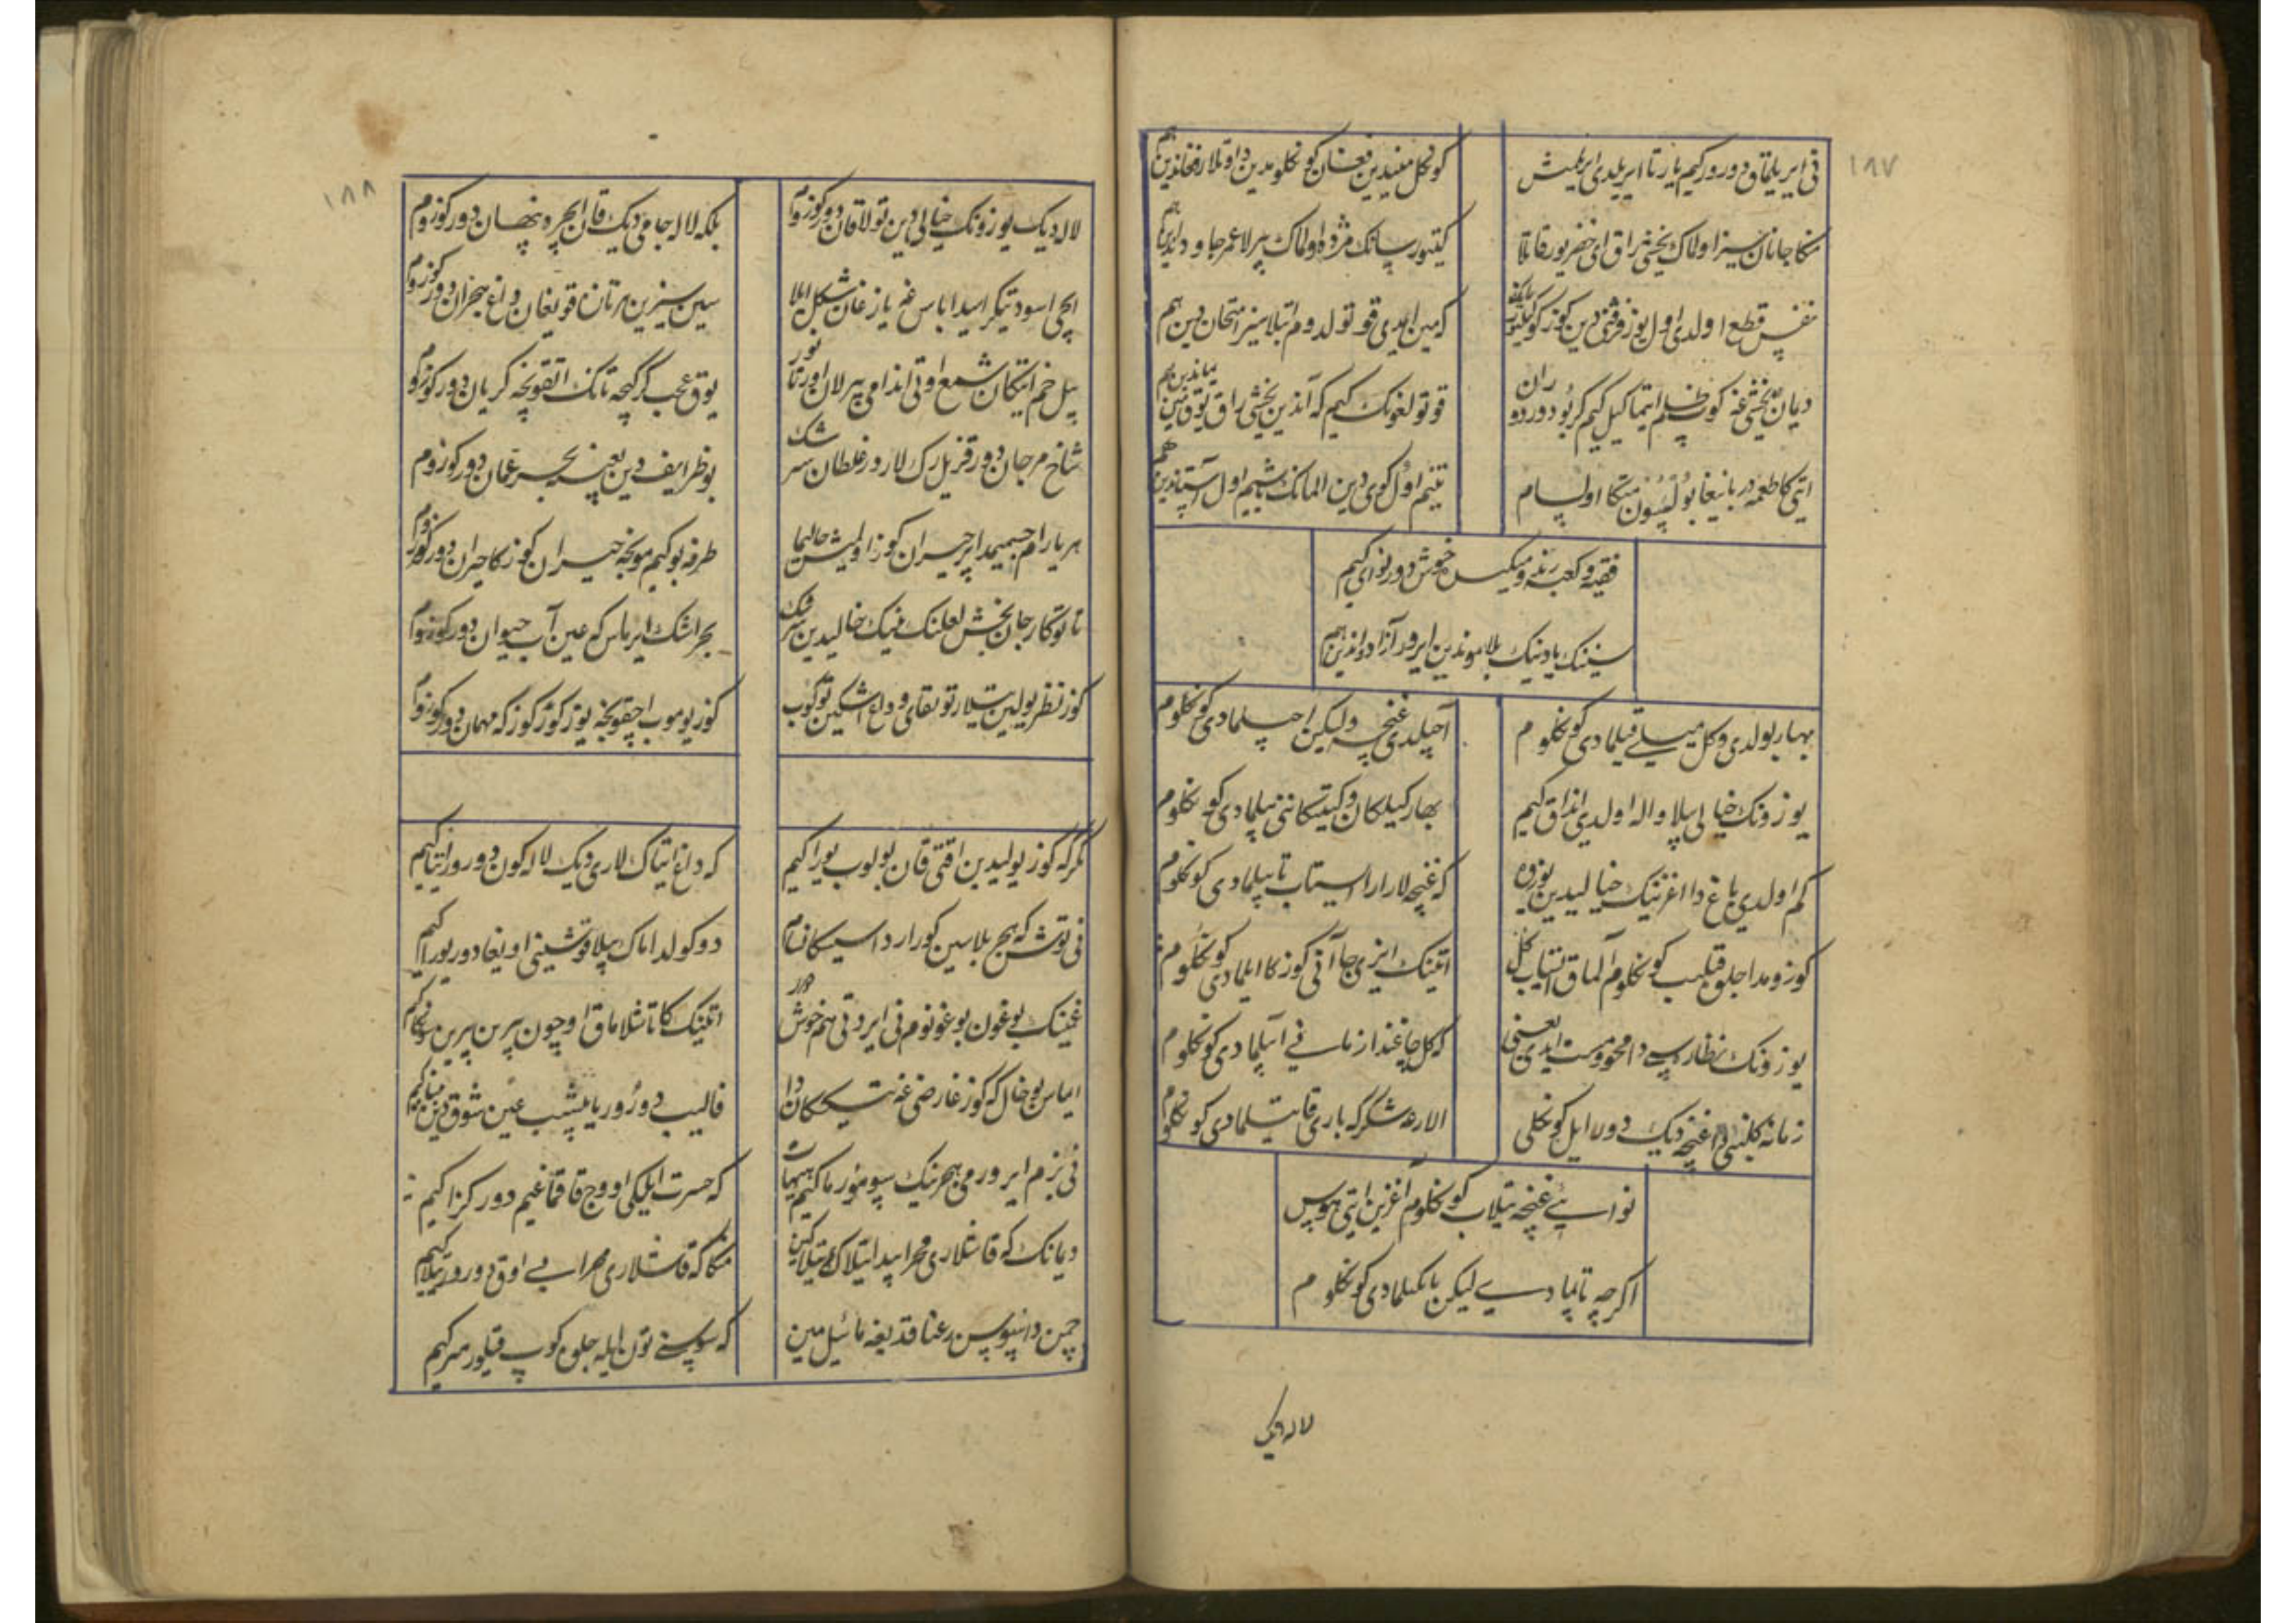 ۱۸۷
نی ایریلماق دورور کیم یار تا ایریلدی ایرلمیش
کونکل مینیدین فغان کونکلومدین داوتلار فغاندین هم
منکا جانان سیز اولماک یخشی راق ای خضر یور قاتلا
کیتور سانک مژده اولماک بیرلا عمر جاوداندین هم
نفس قطع اولدی اول یوز فرقتی دین کوز
که مین ایمدی قوتولدوم ایتلا سیز امتحان دین هم
دیمان یخشی غه کوپ ظلم ایتما کیل کیم کر بو دور دوران
قوتولغونک کیم که آندین یخشی راق یوق تیپ یماندین هم
ایتی کا طعمه دربانیغا بولسون منکا اولسام
تنیم اول کوی دین المانک باشیم اول آستاندین هم
فقیه و کعبه رند و میکده خوش دور نوایی کیم
سنینک یادینک بلا موندین ایرور آزاد و اندین هم
بهار بولدی و کل میلی قیلمادی کونکلوم
آچیلدی غنچه ولیکن اچیلمادی کونکلوم
یوزونک خیالی بیلا واله اولدی انداق کیم
بهار کیلکان و کیتکاننی بیلمادی کونکلوم
کم اولدی باغ دا اغزینک خیالیدین یوزده
که غنچه لار ارا استاب تاپیلمادی کونکلوم
کوزومدا جلوه قیلیب کونکلوم آلماق ایستاب کل
اتینک ایزی جا آنی کوزکا ایلمادی کونکلوم
یوزونک نظاره سیدا محو و مست ایدی یعنی
که کل چاغندا زمانی آییلمادی کونکلوم
زمانه کلبنی دا غنچه دیک دور ایل کونکلی
الارغه شکر که باری قاتیلمادی کونکلوم
نوایی غنچه تیلاب کونکلوم اغزین ایتی هوس
اکرچه تاپمادی لیکن یانکیلمادی کونکلوم
لاله دیک
۱۸۸
لاله دیک یوزونک خیالی دین تولا قان دور کوزوم
بلکه لاله جامی دیک قان ایچره پنهان دور کوزوم
ایچی اسود تیکراسیدا باس غم یازغان شکل ایلا
سین سیزین مرتان قویغان داغ هجران دور کوزوم
بیل خم ایتکان شمع اوتی اندامی بیرلان اورتانور
یوق عجب کر کیچه تانک اتقونچه کریان دور کوزوم
شاخ مرجان دور قزیل رک لار در غلطان سرشک
بو ظرایف دین یعنی بحر عمان دور کوزوم
هر یارام جسمیمدا بیر حیران کوز اولمیش حالیما
طرفه بو کیم مونچه حیران کوزکا حیران دور کوزوم
تا توکار جان بخش لعلنک نینک خیالیدین سرشک
بحر اشک ایرماس که عین آب حیوان دور کوزوم
کوز نظر یولین تیلار توتقای وداع اشکین توکوب
کوز یوموب اچقونچه یوز کوز کوزکه مهمان دور کوزوم
مکر که کوز یولیدین اقتی قان بولوب یوراکیم
که داغ ایتاک لاری دیک لاله کون دورور ایتاکیم
نی توش که هجر بلاسین کورار داسیسکانسام
دوکولداماک بیلا قوشنی اویغادور یوراکیم
غمینک بوغون بوغونوم نی ایردی هم خوش
اتینک کا تاشلاماق اوچون بیرین بیرین سونکاکیم
ایماس بو خال که کوز عارضی غه تیکان دا
قالیب دورور یاپیشیب عین شوق دین ببیاکیم
نی بزم ایرور می هجرنیک سیپومورماکیم هیهات
که حسرت ایلیکی اووچ قاقماغیم دور کزاکیم
دیمانک که قاشلاری محرابیدا تیلاک تیلاکین
منکا که قاشلاری محرابی اوق دورور تیلاکیم
چمن دا سیوسن رعنا قدیغه مائیل مین
که سوسنی تون ایله جلوه کوپ قیلور سرکیم